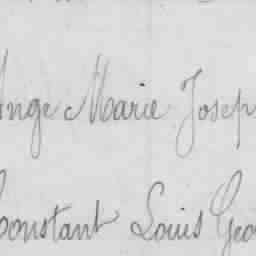 Ange Marie Josep
Constant Louis Geo